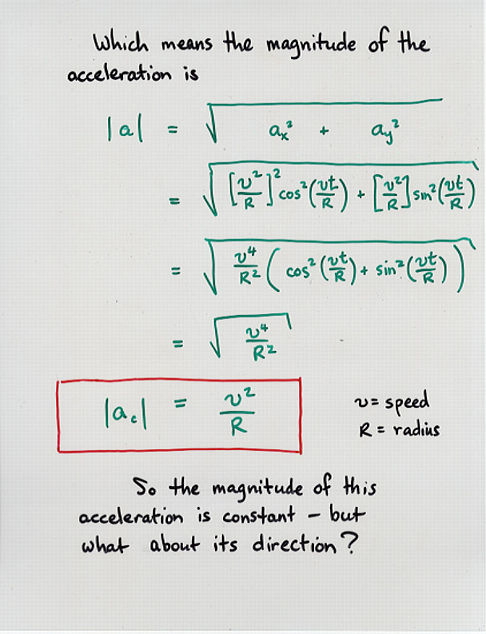 Which means the magnitude of the
acceleration is
|a| = √ aₓ² + a_y²
= √ [v²/R]² cos²(vt/R) + [v²/R] sin²(vt/R)
= √ v⁴/R² ( cos²(vt/R) + sin²(vt/R) )
= √ v⁴/R²
|a_c| = v²/R
v = speed
R = radius
So the magnitude of this
acceleration is constant – but
what about its direction?